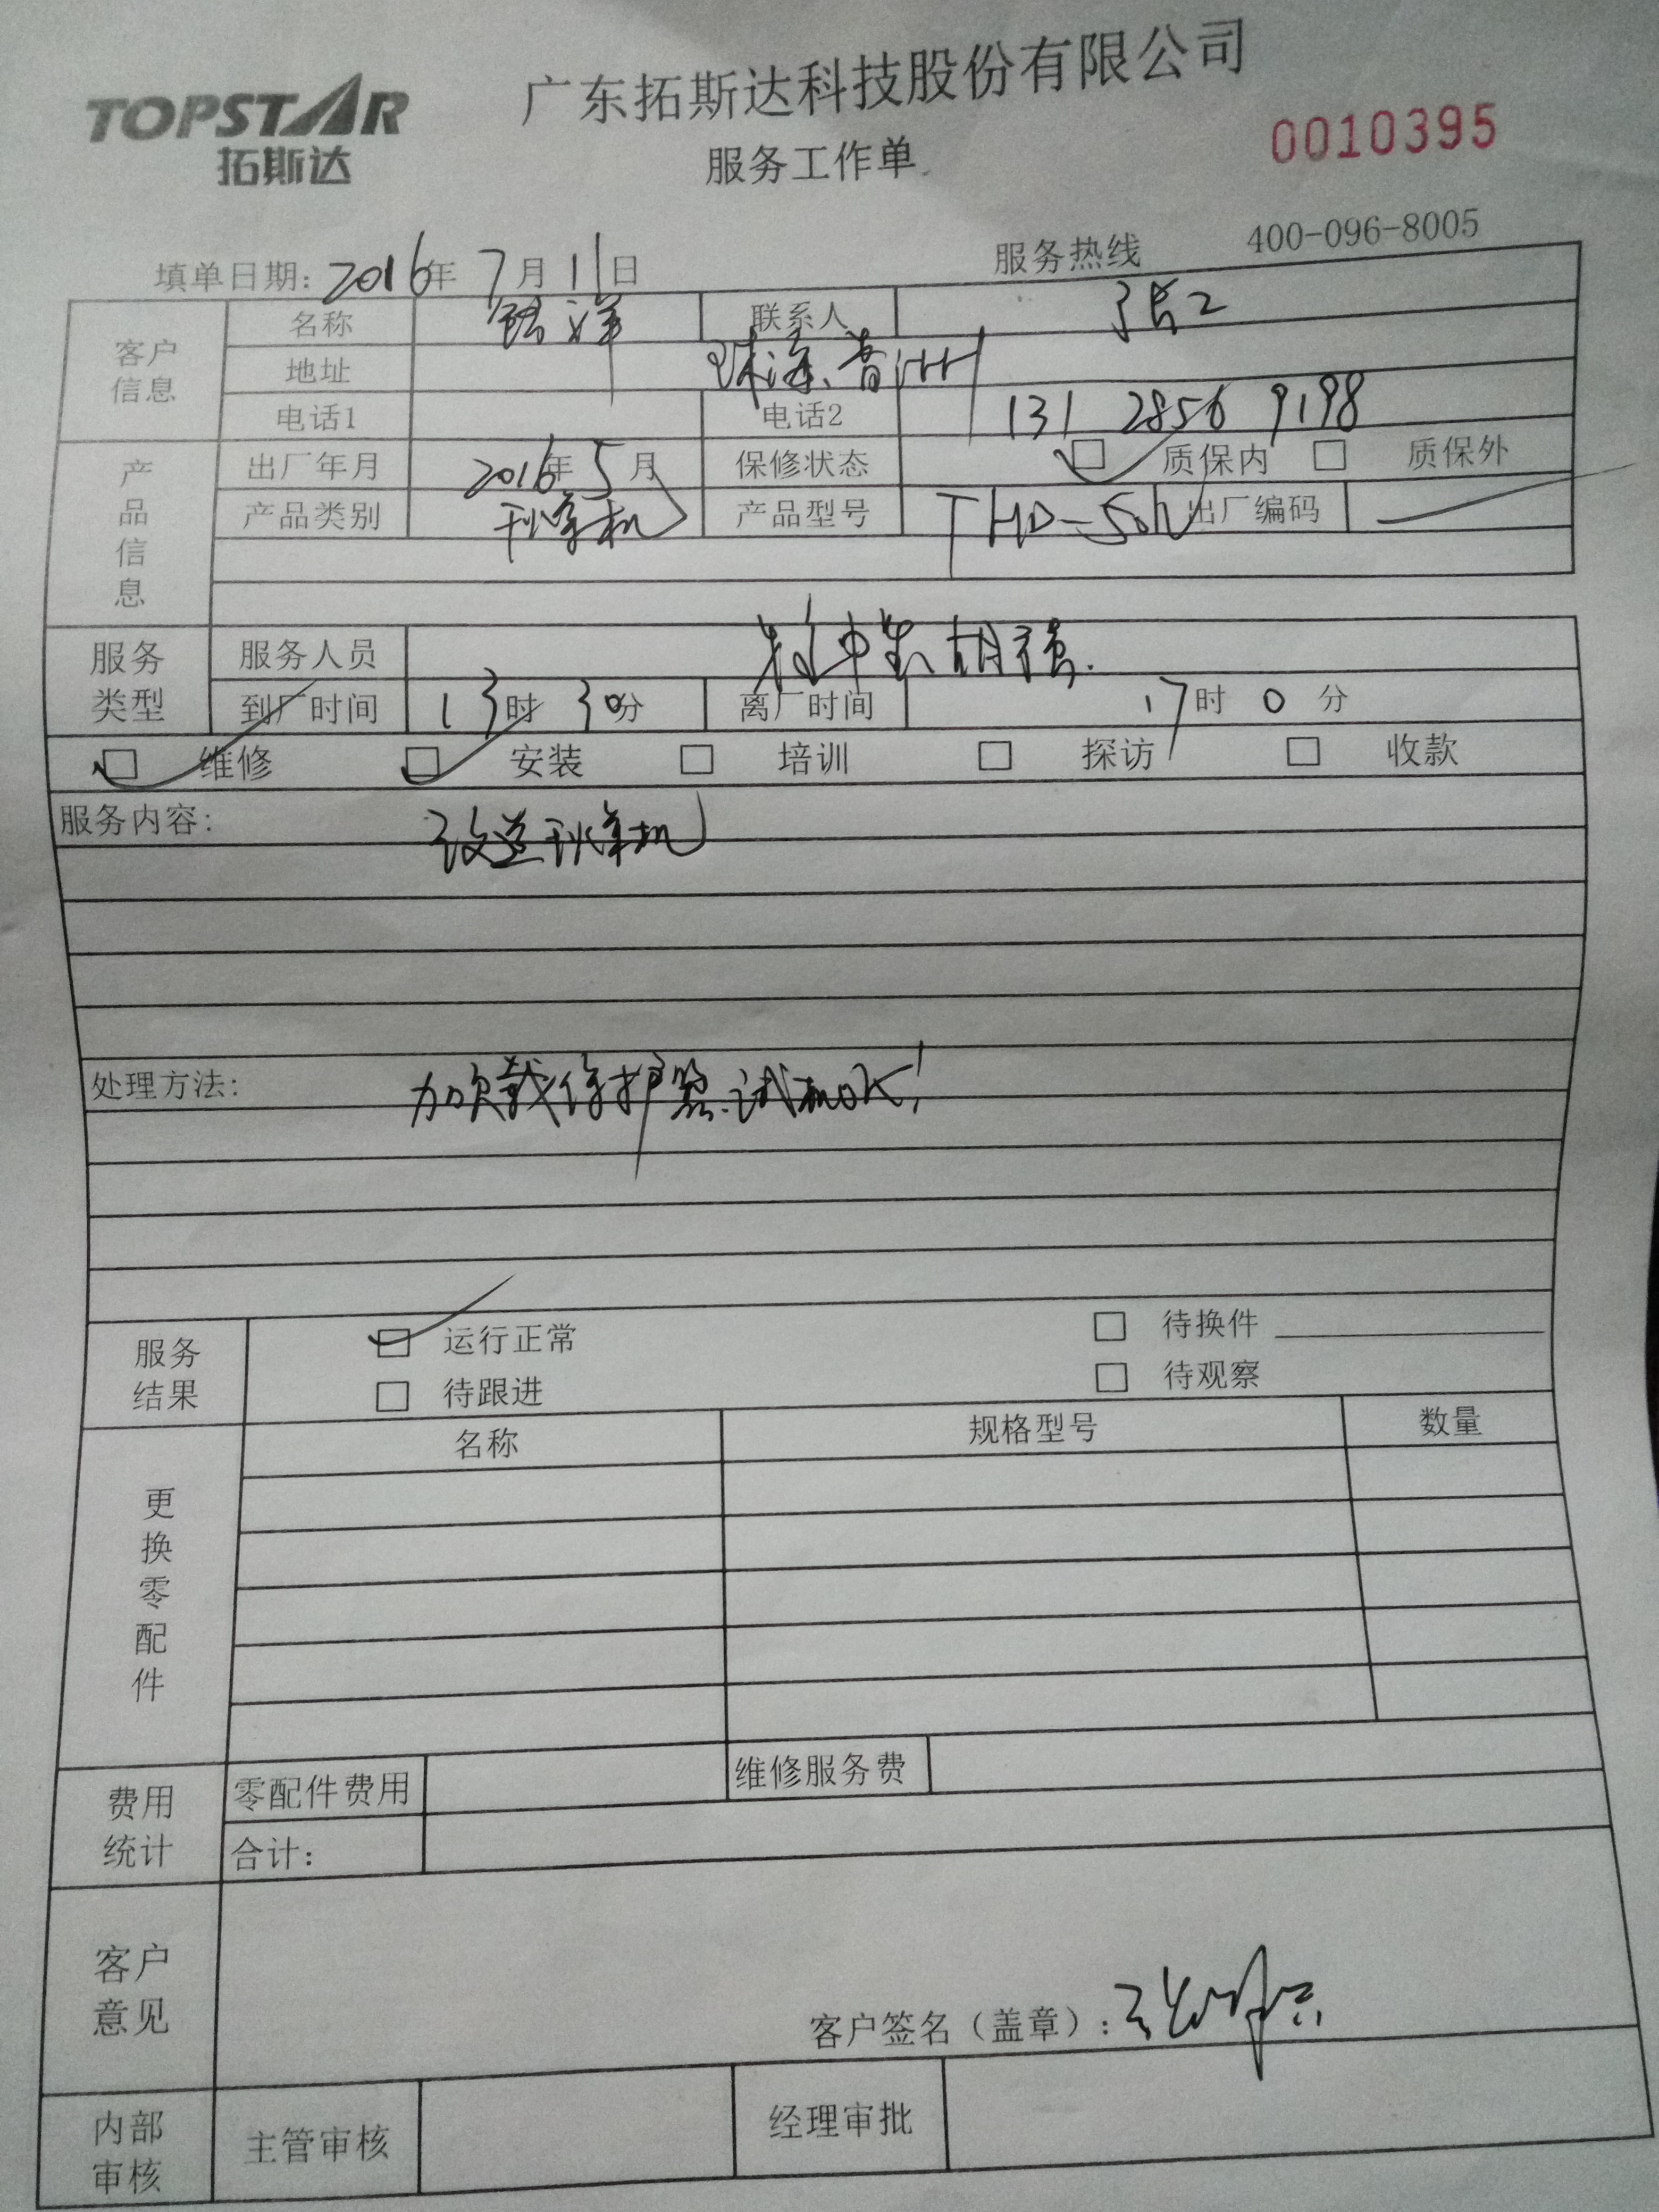 TOPSTAR
拓斯达
广东拓斯达科技股份有限公司
服务工作单
0010395
填单日期: 2016年 7月 11日 服务热线 400-096-8005
客户信息 名称 铭洋 联系人 张工
地址 珠海、普洲
电话1 电话2 131 2856 9198
产品信息 出厂年月 2016年 5月 保修状态 质保内 质保外
产品类别 机 产品型号 THD-50h 出厂编码
服务类型 服务人员 胡强.
到厂时间 13时 30分 离厂时间 17时 0分
维修 安装 培训 探访 收款
服务内容: 改造 机
处理方法: 加欠载保护器.试机OK!
服务结果 运行正常 待换件
待跟进 待观察
更换零配件 名称 规格型号 数量
费用统计 零配件费用 维修服务费
合计:
客户意见
客户签名(盖章):
内部审核 主管审核 经理审批